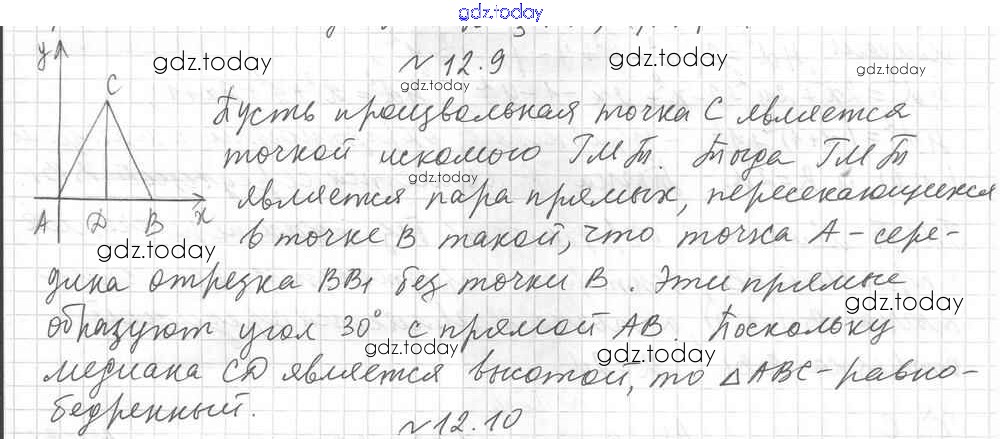 gdz.today
№ 12.9
y
C
A D B x
Пусть произвольная точка C является
точкой искомого ГМТ. Тогда ГМТ
является пара прямых, пересекающихся
в точке B такой, что точка A - сере-
дина отрезка BB₁ без точки B. Эти прямые
образуют угол 30° с прямой AB. Поскольку
медиана CD является высотой, то △ABC - равно-
бедренный.
№ 12.10
gdz.today
gdz.today
gdz.today
gdz.today
gdz.today
gdz.today
gdz.today
gdz.today
gdz.today